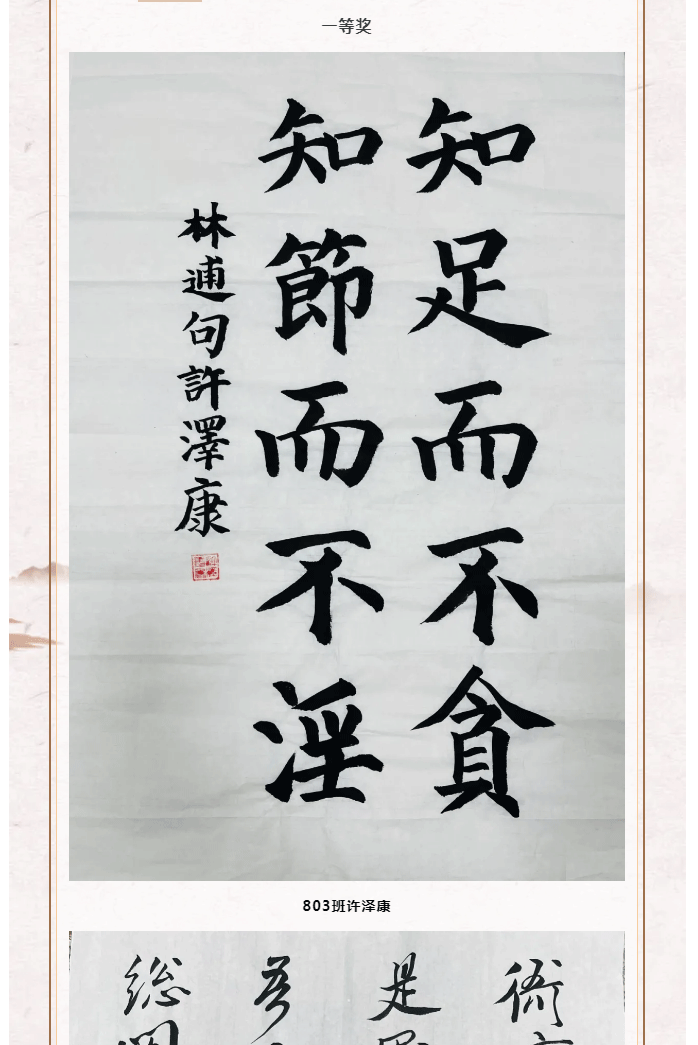 一等奖
知足而不貪
知節而不淫
林逋句許澤康
803班许泽康
衔
是
吾
総